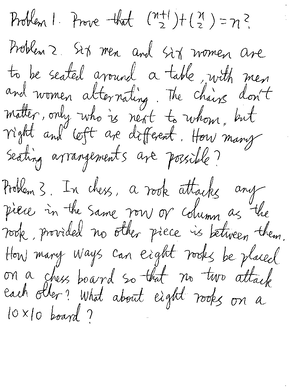 Problem 1. Prove that (n+1 2)+(n 2) = n².
Problem 2. Six men and six women are
to be seated around a table, with men
and women alternating. The chairs don't
matter, only who is next to whom, but
right and left are different. How many
seating arrangements are possible?
Problem 3. In chess, a rook attacks any
piece in the same row or column as the
rook, provided no other piece is between them.
How many ways can eight rooks be placed
on a chess board so that no two attack
each other? What about eight rooks on a
10×10 board?